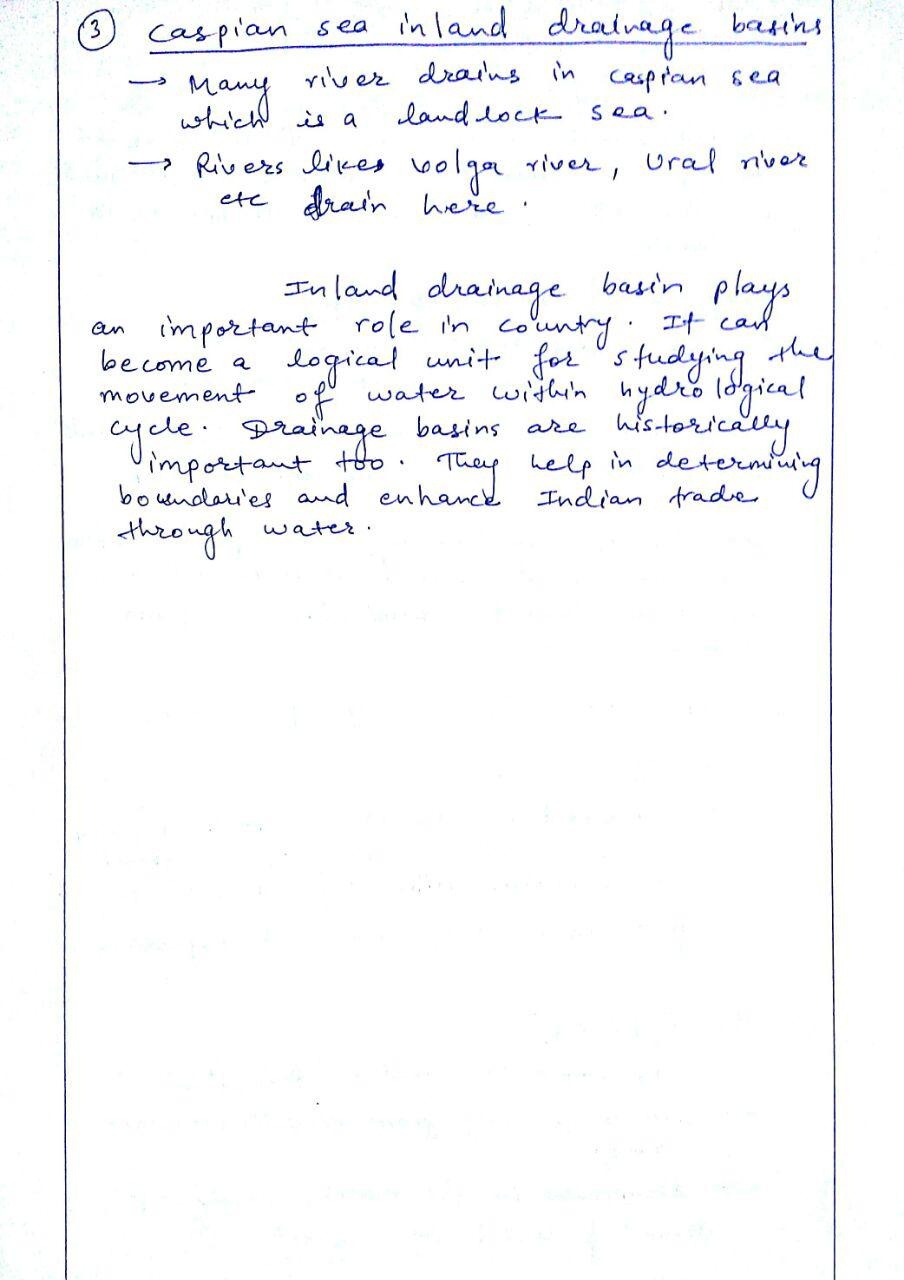 3 Caspian sea inland drainage basins
→ Many river drains in caspian sea
which is a landlock sea.
→ Rivers likes volga river, Ural river
etc drain here.
Inland drainage basin plays
an important role in country. It can
become a logical unit for studying the
movement of water within hydrological
cycle. Drainage basins are historically
important too. They help in determining
boundaries and enhance Indian trade
through water.